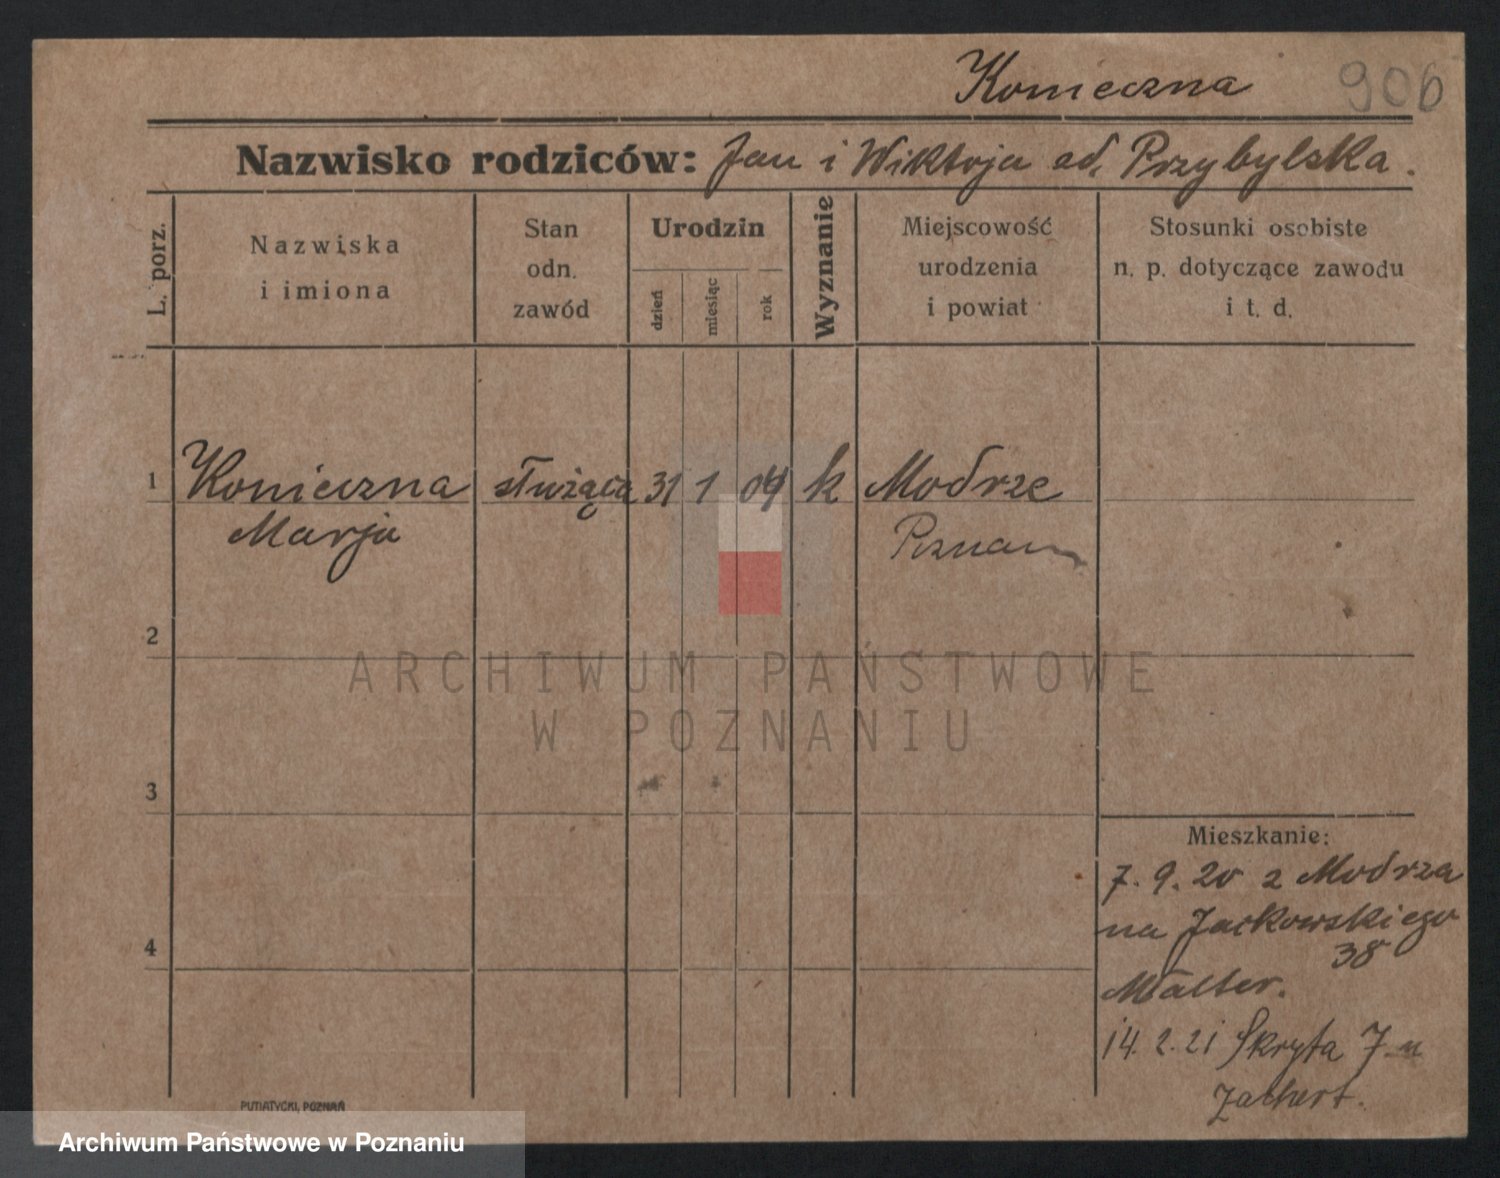 Konieczna 906
Nazwisko rodziców: Jan i Wiktorja od. Przybylska.
L. porz.
Nazwiska
i imiona
Stan
odn.
zawód
Urodzin
dzień
miesiąc
rok
Wyznanie
Miejscowość
urodzenia
i powiat
Stosunki osobiste
n. p. dotyczące zawodu
i t. d.
1 Konieczna służąca 31 1 04 k Modrze
Marja Poznań
2
ARCHIWUM PAŃSTWOWE
W POZNANIU
3
Mieszkanie:
7. 9. 20 z Modrza
na Jackowskiego
38
4
Malter.
14. 2. 21 Skryta 7
Zachert.
PUTIATYCKI, POZNAŃ
Archiwum Państwowe w Poznaniu